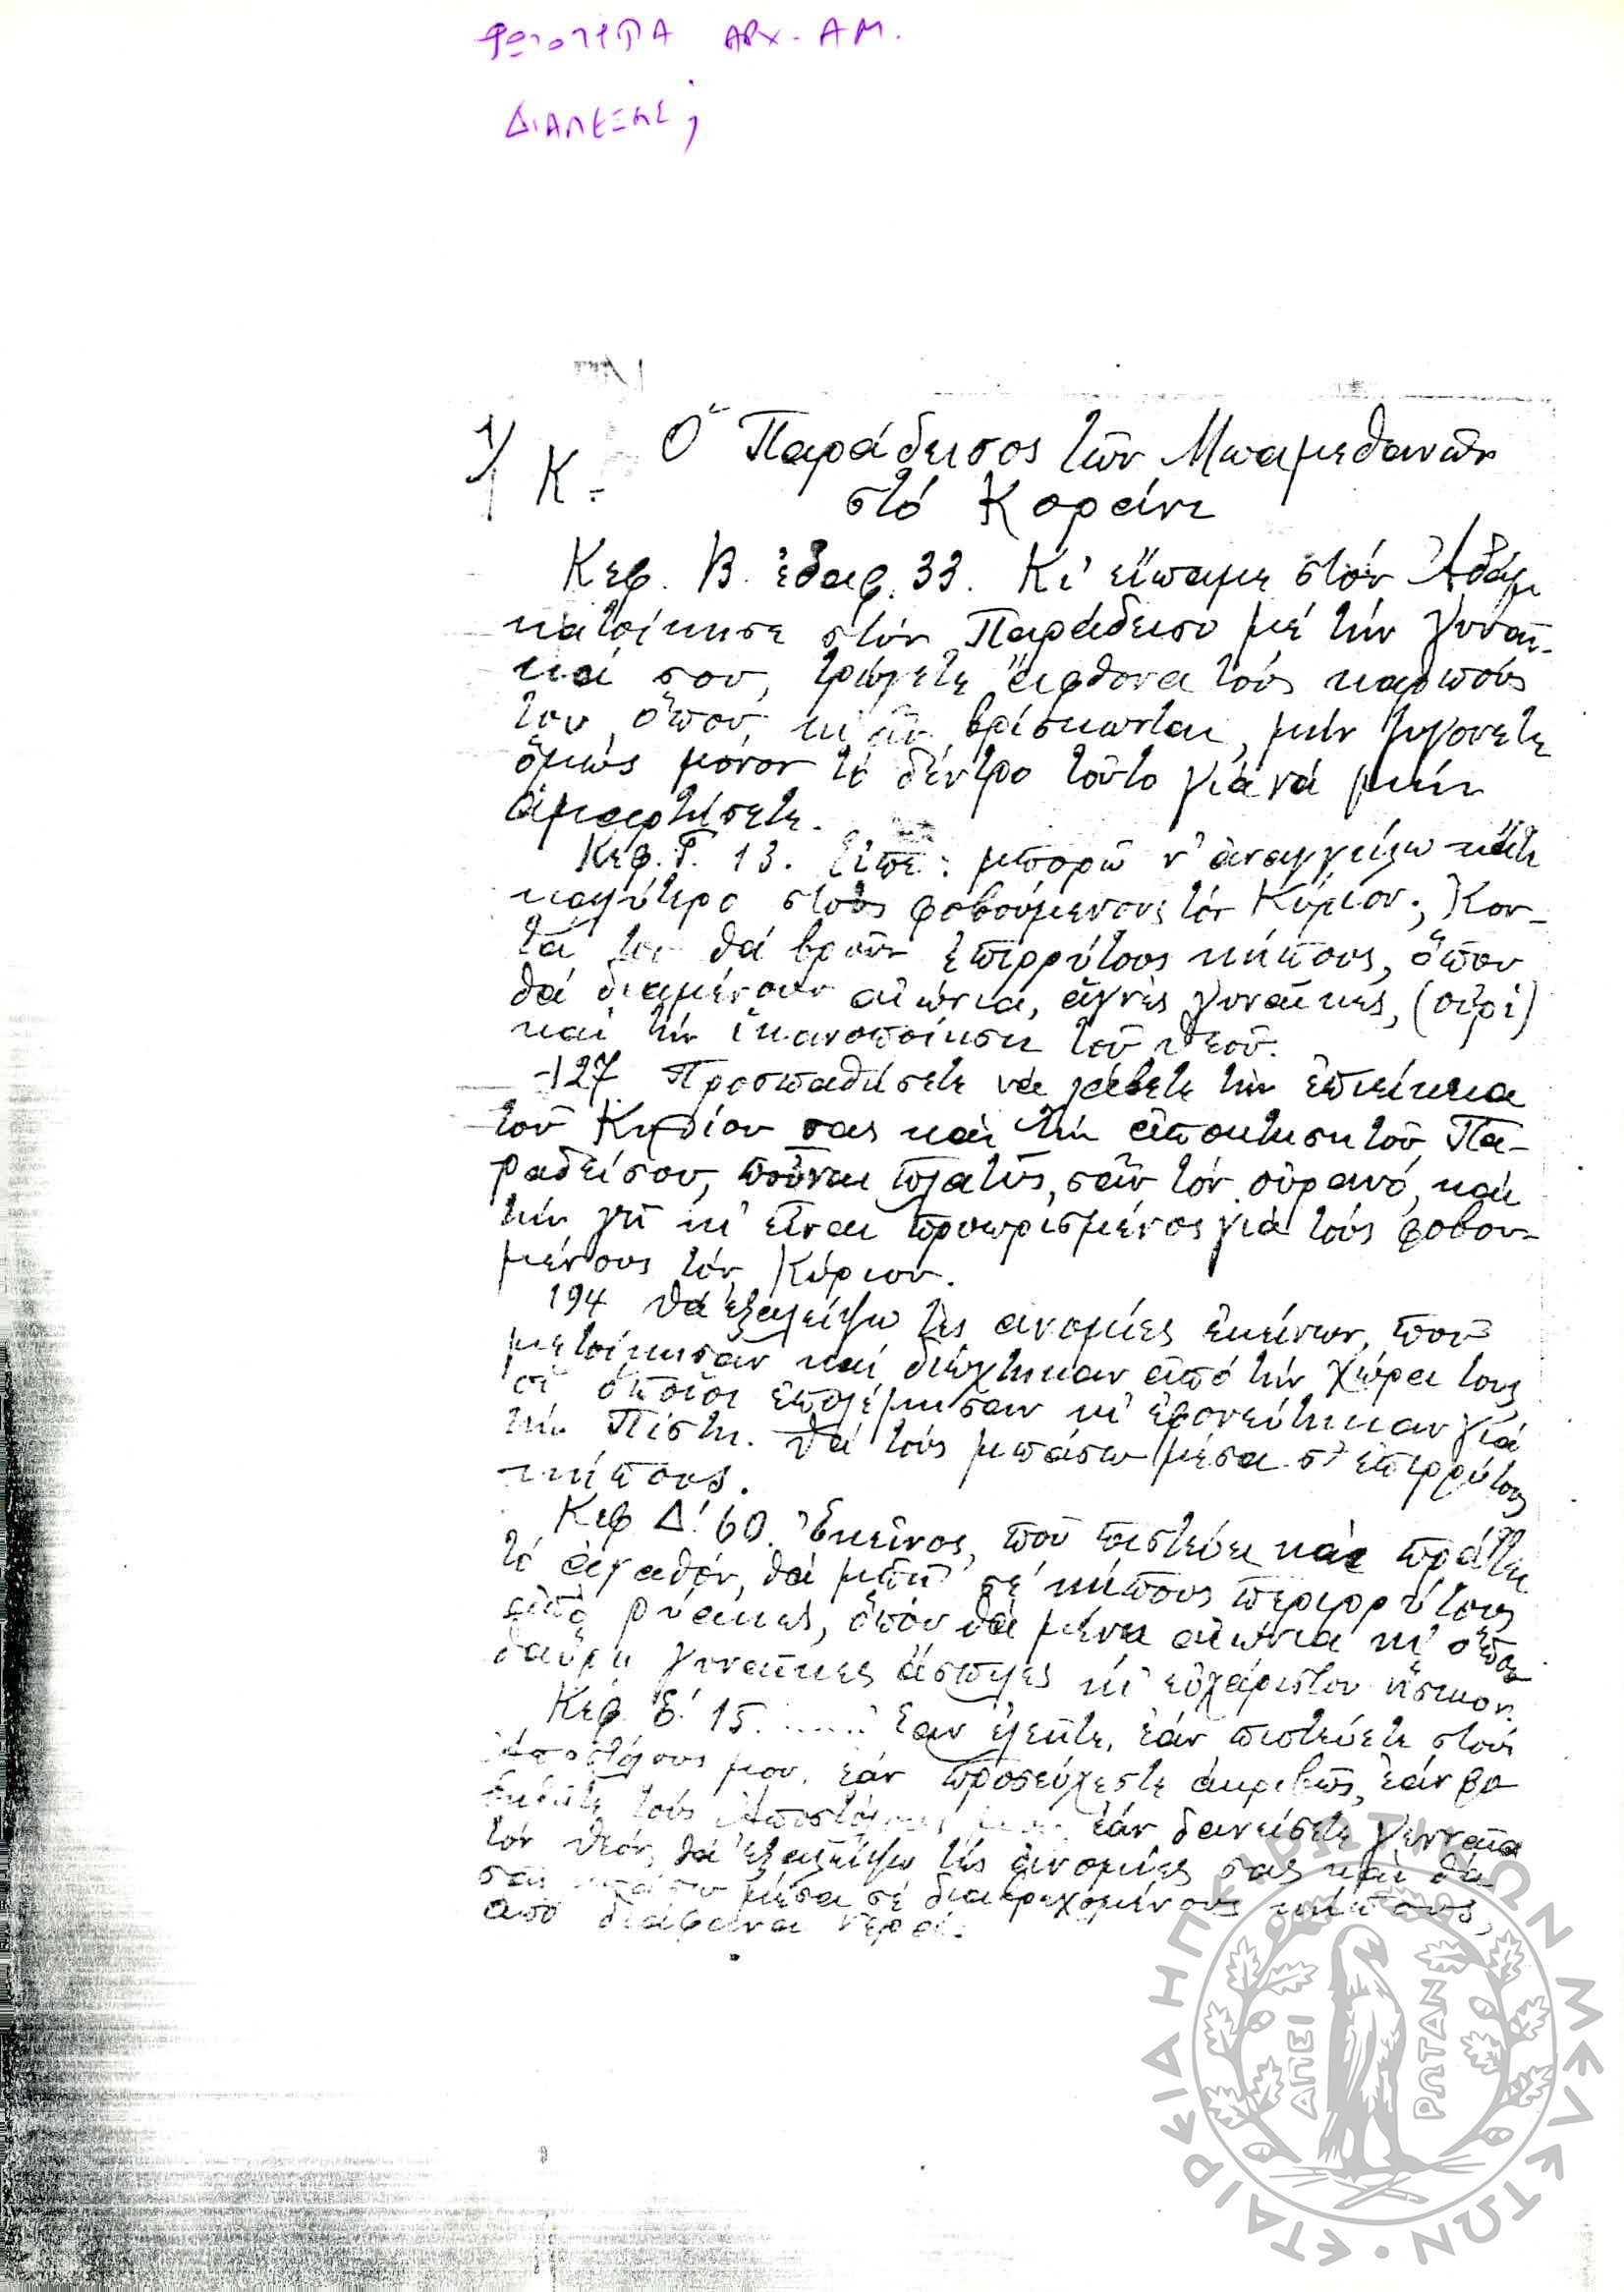 ΦΩΤΟΤΥΠΑ ΑΡΧ. ΑΜ.
ΔΙΑΛΕΞΕΙΣ;
1/ Κ. Ὁ Παράδεισος τῶν Μωαμεθανῶν
στό Κοράνι
Κεφ. Β. ἐδαφ. 33. Κι' εἴπαμε στόν Ἀδάμ
κατοίκησε στόν Παράδεισο μέ τήν γυναῖ-
κά σου, τρώγετε ἄφθονα τούς καρπούς
του ὅπου κι' ἄν βρίσκωνται, μήν ζυγόνετε
ὅμως μόνον τό δέντρο τοῦτο γιά νά μήν
ἁμαρτήσετε.
Κεφ. Γ. 13. Εἰπέ: μπορῶ ν' ἀναγγείλω κάτι
καλύτερο στούς φοβούμενους τόν Κύριον; Κον-
τά του θά βροῦν ἐπιρρύτους κήπους, ὅπου
θά διαμένουν αἰώνια, ἁγνές γυναῖκες, (οὐρί)
καί τήν ἱκανοποίηση τοῦ Θεοῦ.
-127 Προσπαθήσετε νά λάβετε τήν ἐπιείκεια
τοῦ Κυρίου σας καί τήν ἀπόκτηση τοῦ Πα-
ραδείσου, ποὖναι πλατύς, σάν τόν οὐρανό, καί
τήν γῆ κι' εἶναι προωρισμένος γιά τούς φοβου-
μένους τόν Κύριον.
194 Θά ἐξαλείψω τές ἀνομίες ἐκείνων, πού
μετοίκησαν καί διώχτηκαν ἀπό τήν χώρα τους
οἱ ὁποῖοι ἐπολέμησαν κι' ἐφονεύτηκαν γιά
τήν Πίστη. Θά τούς μπάσω μέσα σ' ἐπιρρύτους
κήπους.
Κεφ Δ! 60. Ἐκεῖνος, πού πιστεύει καί πράττει
τό ἀγαθόν, θά μπῆ σέ κήπους περιρρύτους
ἀπό ρύακες, ὅπου θά μένει αἰώνια κι' ὅπου
θαὔρη γυναῖκες ἄσπιλες κι' εὐχάριστον ἥσκιον.
Κεφ. Ε! 15. ...... Ἐάν ἐλεῆτε, ἐάν πιστεύετε στούς
Ἀποστόλους μου, ἐάν προσεύχεστε ἀκριβῶς, ἐάν βο
ηθῆτε τούς Ἀποστόλους μου, ἐάν δανείσετε γενναῖα
τόν Θεόν, θά ἐξαλείψω τές ἀνομίες σας καί θά
σᾶς μπάσω μέσα σέ διαβρεχομένους κήπους,
ἀπό διάφανα νερά.
ΕΤΑΙΡΕΙΑ ΗΠΕΙΡΩΤΙΚΩΝ ΜΕΛΕΤΩΝ
ΑΠΕΙ ΡΩΤΑΝ